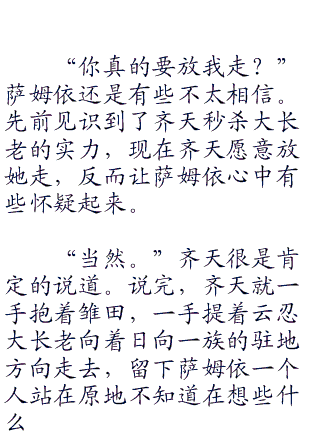 “你真的要放我走？”
萨姆依还是有些不太相信。
先前见识到了齐天秒杀大长
老的实力，现在齐天愿意放
她走，反而让萨姆依心中有
些怀疑起来。
“当然。”齐天很是肯
定的说道。说完，齐天就一
手抱着雏田，一手提着云忍
大长老向着日向一族的驻地
方向走去，留下萨姆依一个
人站在原地不知道在想些什
么